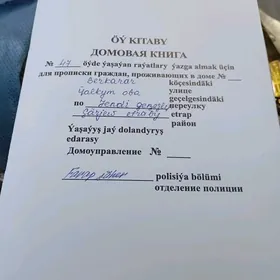 ÖÝ KITABY
ДОМОВАЯ КНИГА
№ 47 öýde ýaşaýan raýatlary ýazga almak üçin
для прописки граждан, проживающих в доме №
Berkarar köçesindäki
Ýalkym oba улице
geçelgesindäki
по переулку
etraby etrap
район
Ýaşaýyş jaý dolandyryş
edarasy
Домоуправление №
Farap polisiýa bölümi
отделение полиции